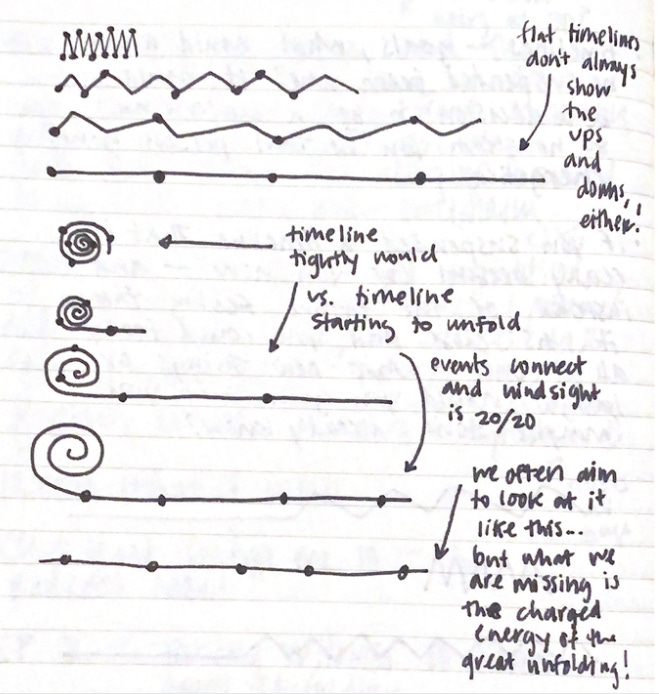 flat timelines
don't always
show
the
ups
and
downs,
either!
timeline
tightly would
vs. timeline
starting to unfold
events connect
and hindsight
is 20/20
we often aim
to look at it
like this...
but what we
are missing is
the charged
energy of the
great unfolding!